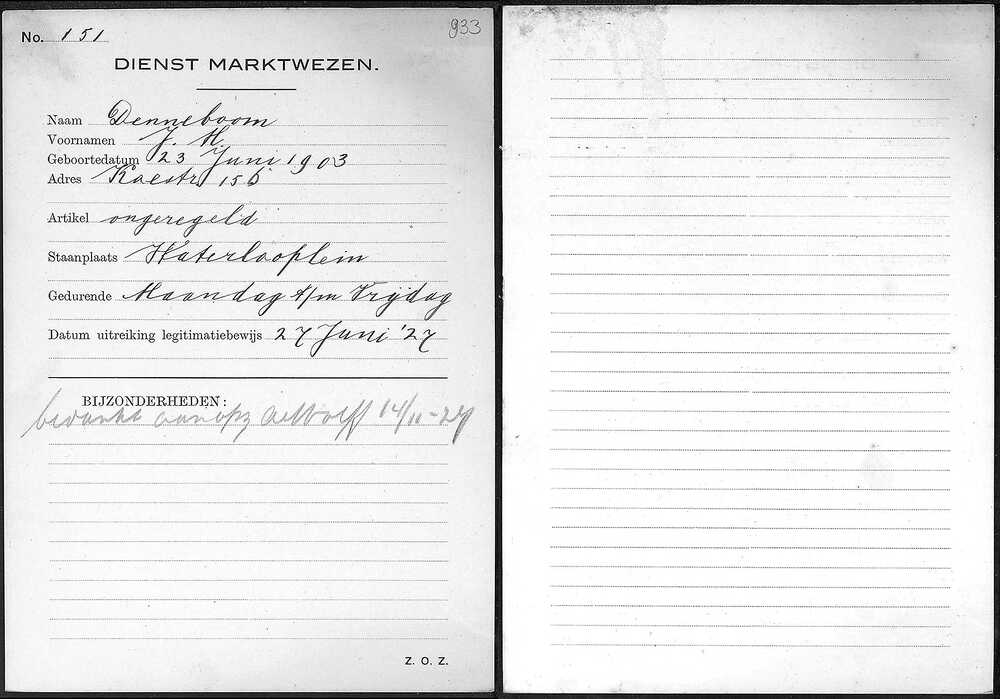 No. 151
933
DIENST MARKTWEZEN.
Naam Denneboom
Voornamen J. H.
Geboortedatum 23 Juni 1903
Adres 156
Artikel ongeregeld
Staanplaats Waterlooplein
Gedurende Maandag t/m Vrijdag
Datum uitreiking legitimatiebewijs 27 Juni '27
BIJZONDERHEDEN:
bedankt 14/11-27
Z. O. Z.